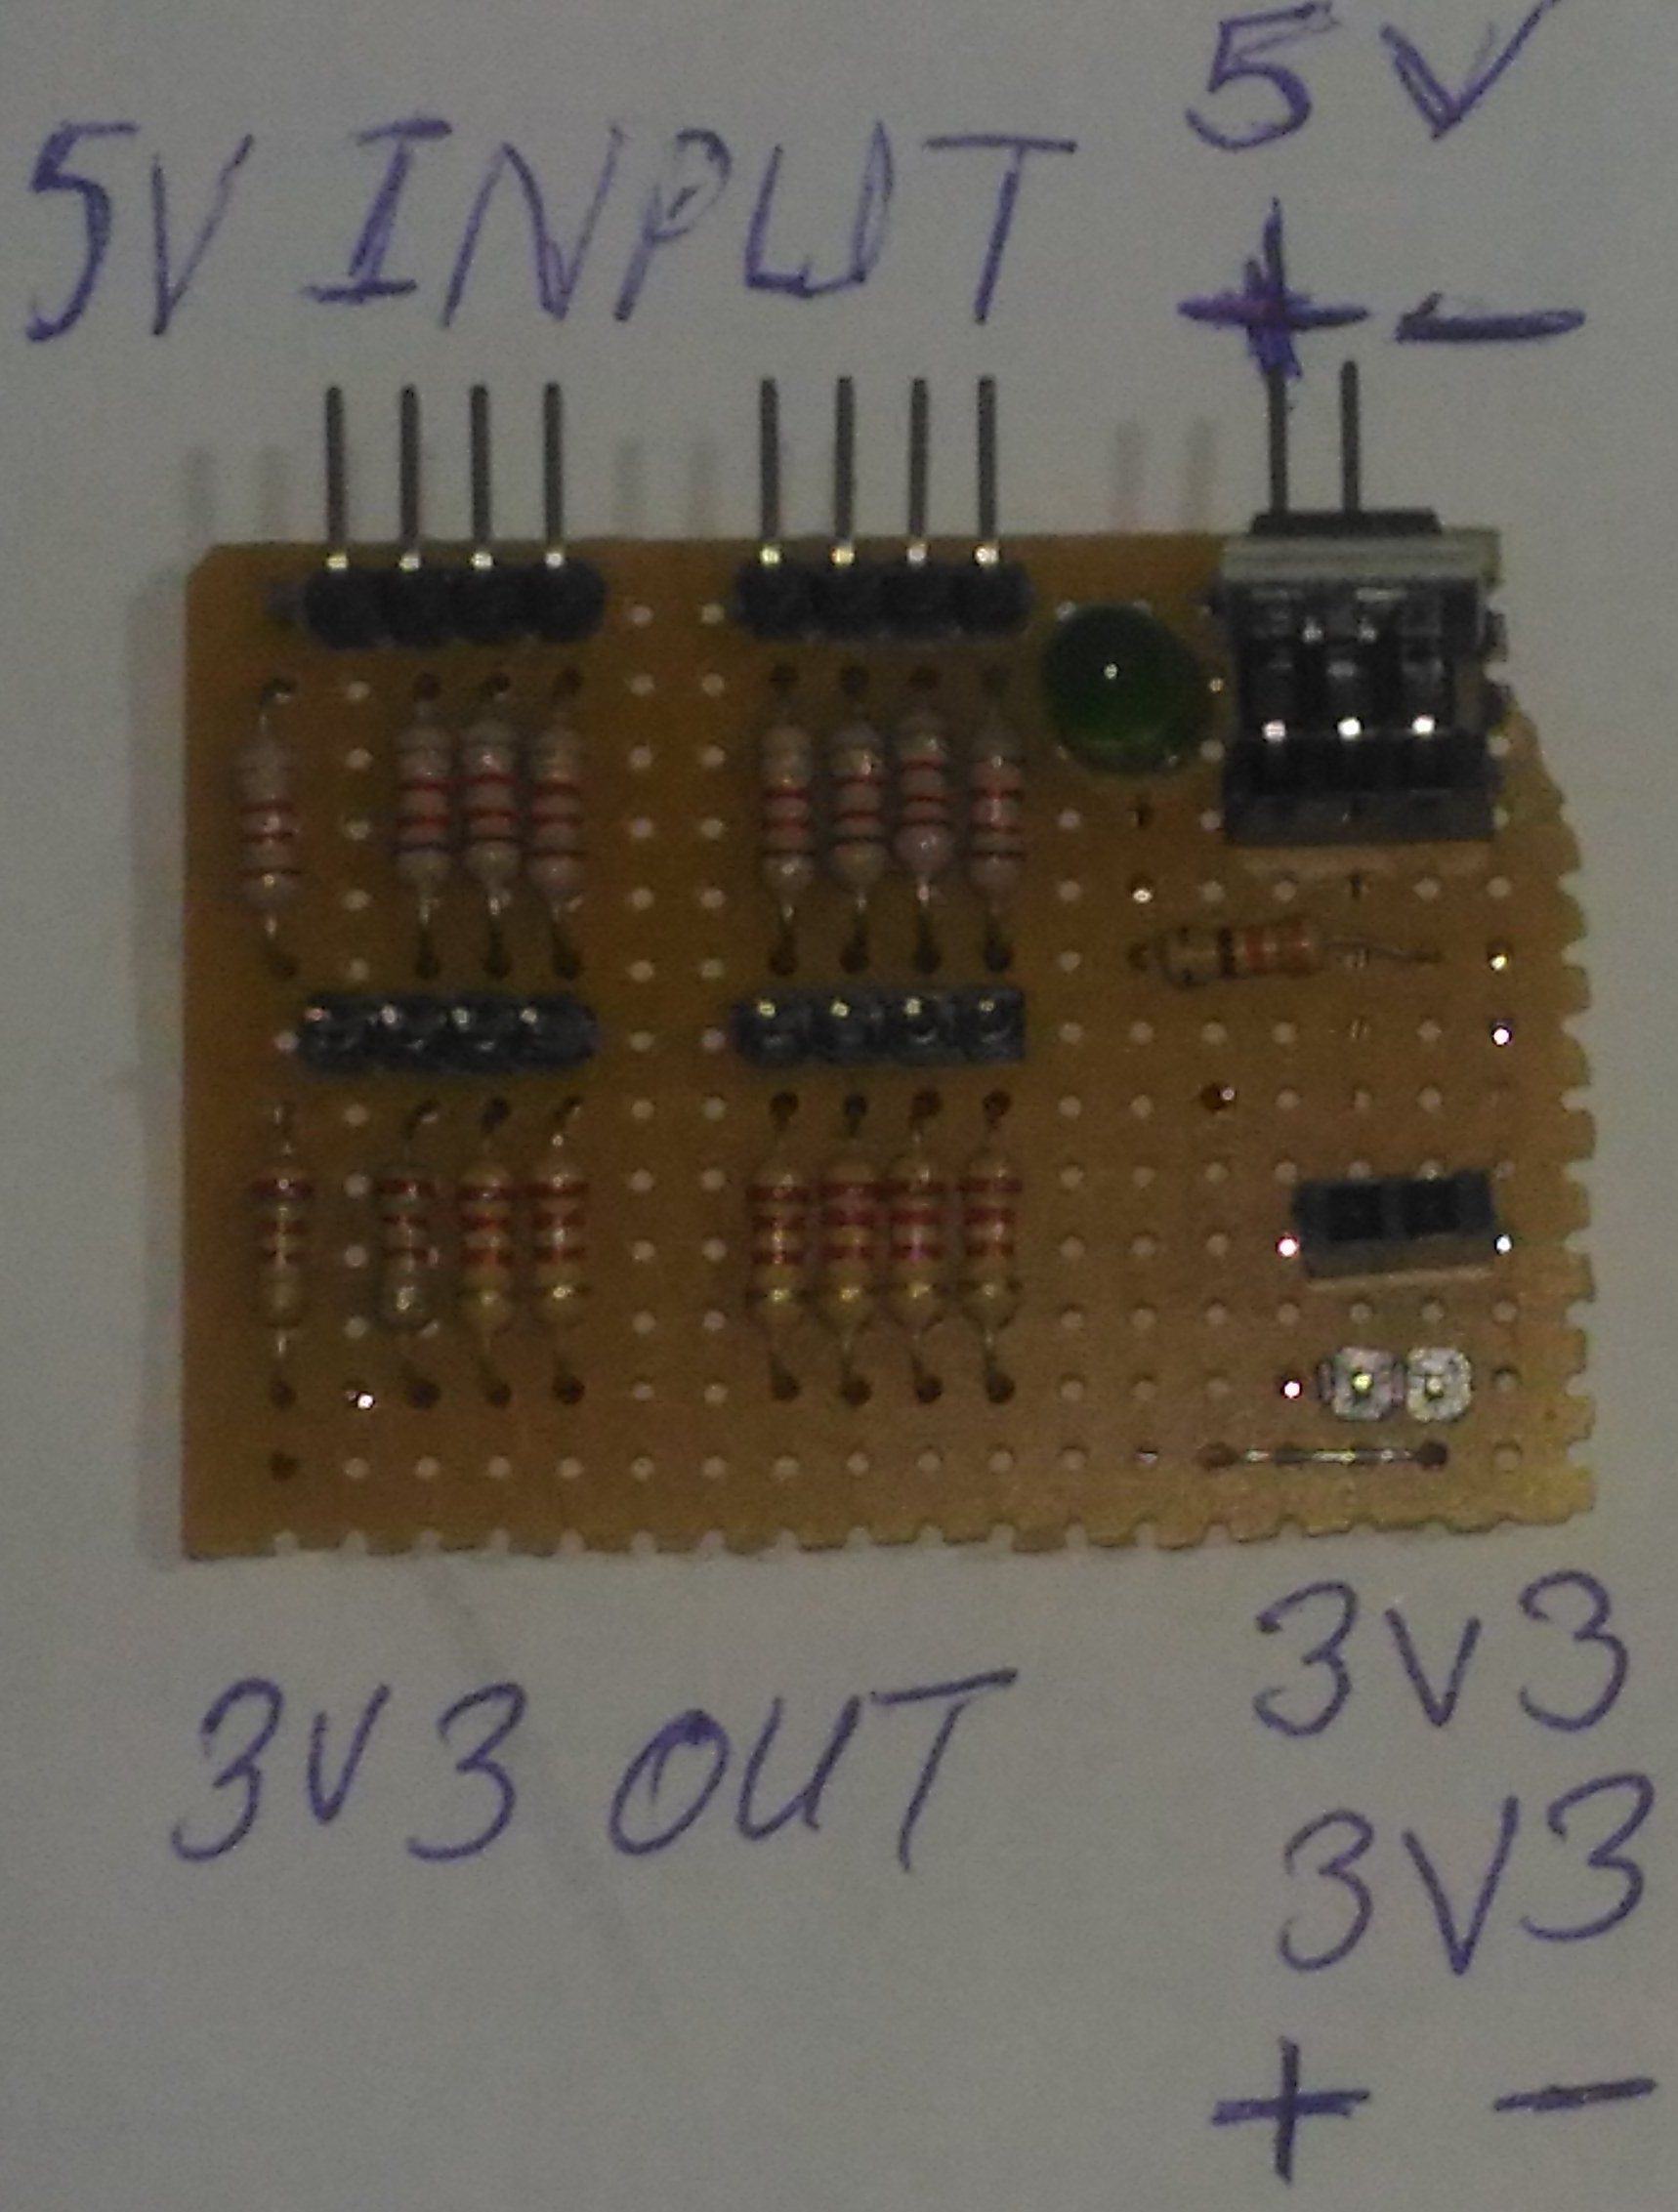 5V
5V INPUT
+ -
3V3 OUT
3V3
3V3
+ -